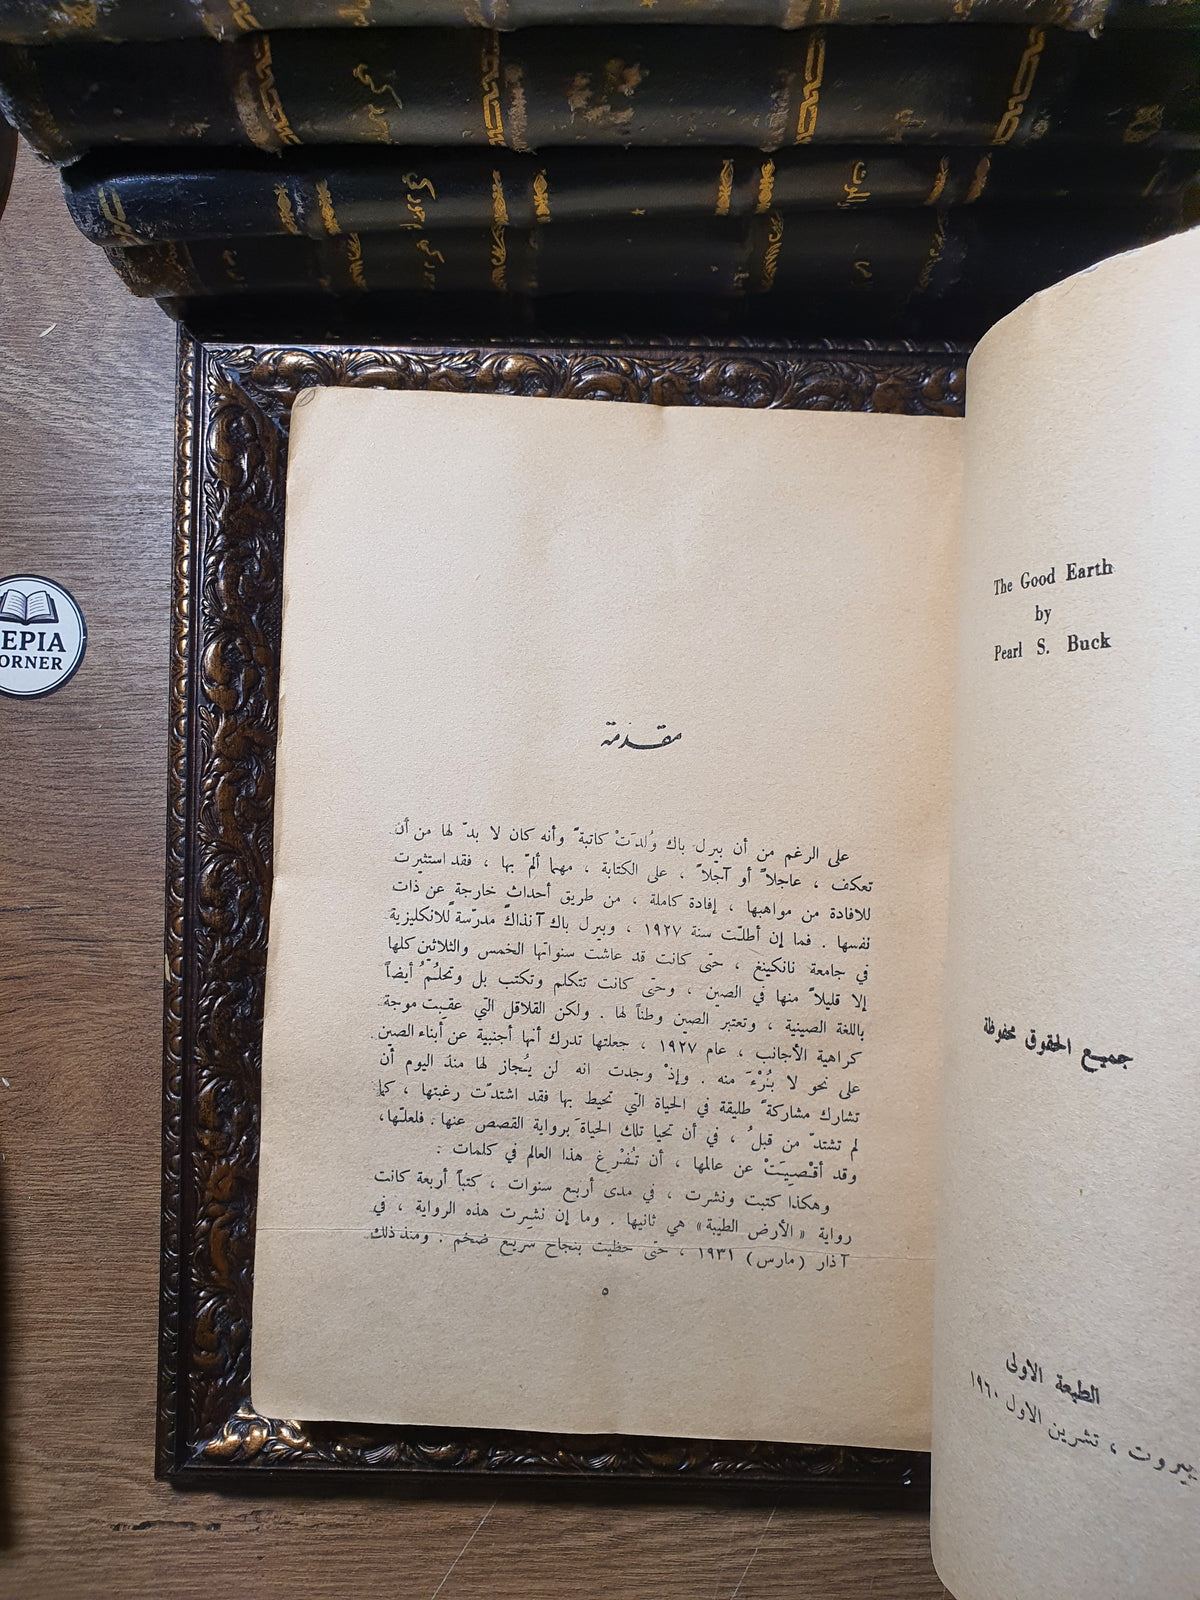 The Good Earth
by
Pearl S. Buck
جميع الحقوق محفوظة
الطبعة الاولى
بيروت ، تشرين الاول ١٩٦٠
مقدمة
على الرغم من أن بيرل باك وُلدَتْ كاتبةً وأنه كان لا بدّ لها من أن
تعكف ، عاجلاً أو آجلاً ، على الكتابة ، مهما ألمّ بها ، فقد استثيرت
للافادة من مواهبها ، إفادة كاملة ، من طريق أحداث خارجة عن ذات
نفسها . فما إن أطلـّت سنة ١٩٢٧ ، وبيرل باك آنذاك مدرّسة للانكليزية
في جامعة نانكينغ ، حتى كانت قد عاشت سنواتها الخمس والثلاثين كلها
إلا قليلاً منها في الصين ، وحتى كانت تتكلم وتكتب بل وتحلُمُ أيضاً
باللغة الصينية ، وتعتبر الصين وطناً لها . ولكن القلاقل التي عقبت موجة
كراهية الأجانب ، عام ١٩٢٧ ، جعلتها تدرك أنها أجنبية عن أبناء الصين
على نحو لا بُرْءَ منه . وإذْ وجدت انه لن يُجاز لها منذ اليوم أن
تشارك مشاركةً طليقة في الحياة التي تحيط بها فقد اشتدّت رغبتها ، كما
لم تشتدّ من قبلُ ، في أن تحيا تلك الحياةَ برواية القصص عنها . فلعلـّها،
وقد أقـْصِيَتْ عن عالمها ، أن تُفْرِغ هذا العالم في كلمات :
وهكذا كتبت ونشرت ، في مدى أربع سنوات ، كتباً أربعة كانت
رواية « الأرض الطيبة » هي ثانيها . وما إن نشرت هذه الرواية ، في
آذار (مارس) ١٩٣١ ، حتى حظيت بنجاح سريع ضخم . ومنذ ذلك
٥
EPIA
ORNER